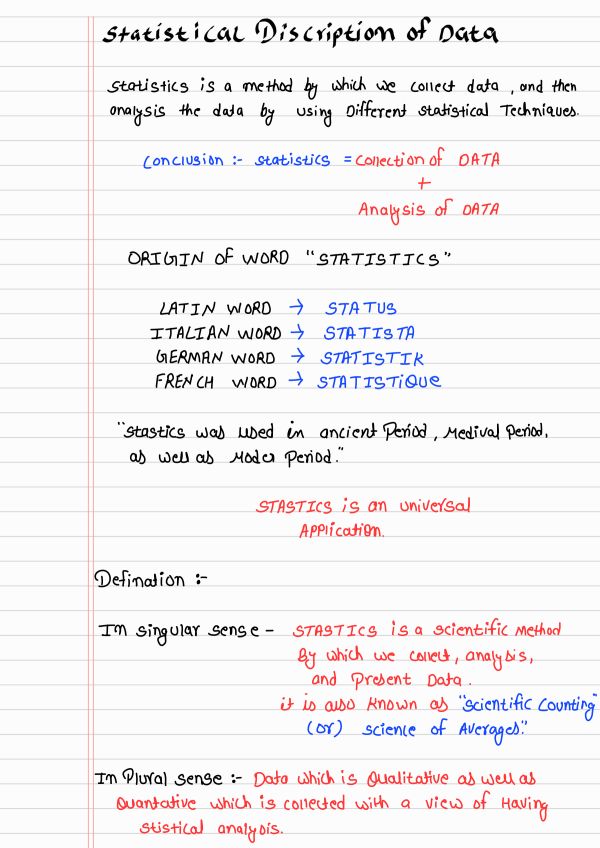 Statistical Discription of Data
Statistics is a method by which we collect data, and then
analysis the data by using Different statistical Techniques.
Conclusion :- statistics = Collection of DATA
+
Analysis of DATA
ORIGIN OF WORD "STATISTICS"
LATIN WORD → STATUS
ITALIAN WORD → STATISTA
GERMAN WORD → STATISTIK
FRENCH WORD → STATISTIQUE
"Stastics was used in ancient Period, Medival Period,
as well as Moder Period."
STASTICS is an universal
APPlication.
Defination :-
In singular sense - STASTICS is a scientific Method
by which we collect, analysis,
and Present Data.
it is also known as "scientific Counting"
(or) science of Averages."
In Plural sense :- Data which is Qualitative as well as
Quantative which is collected with a view of Having
stistical analysis.